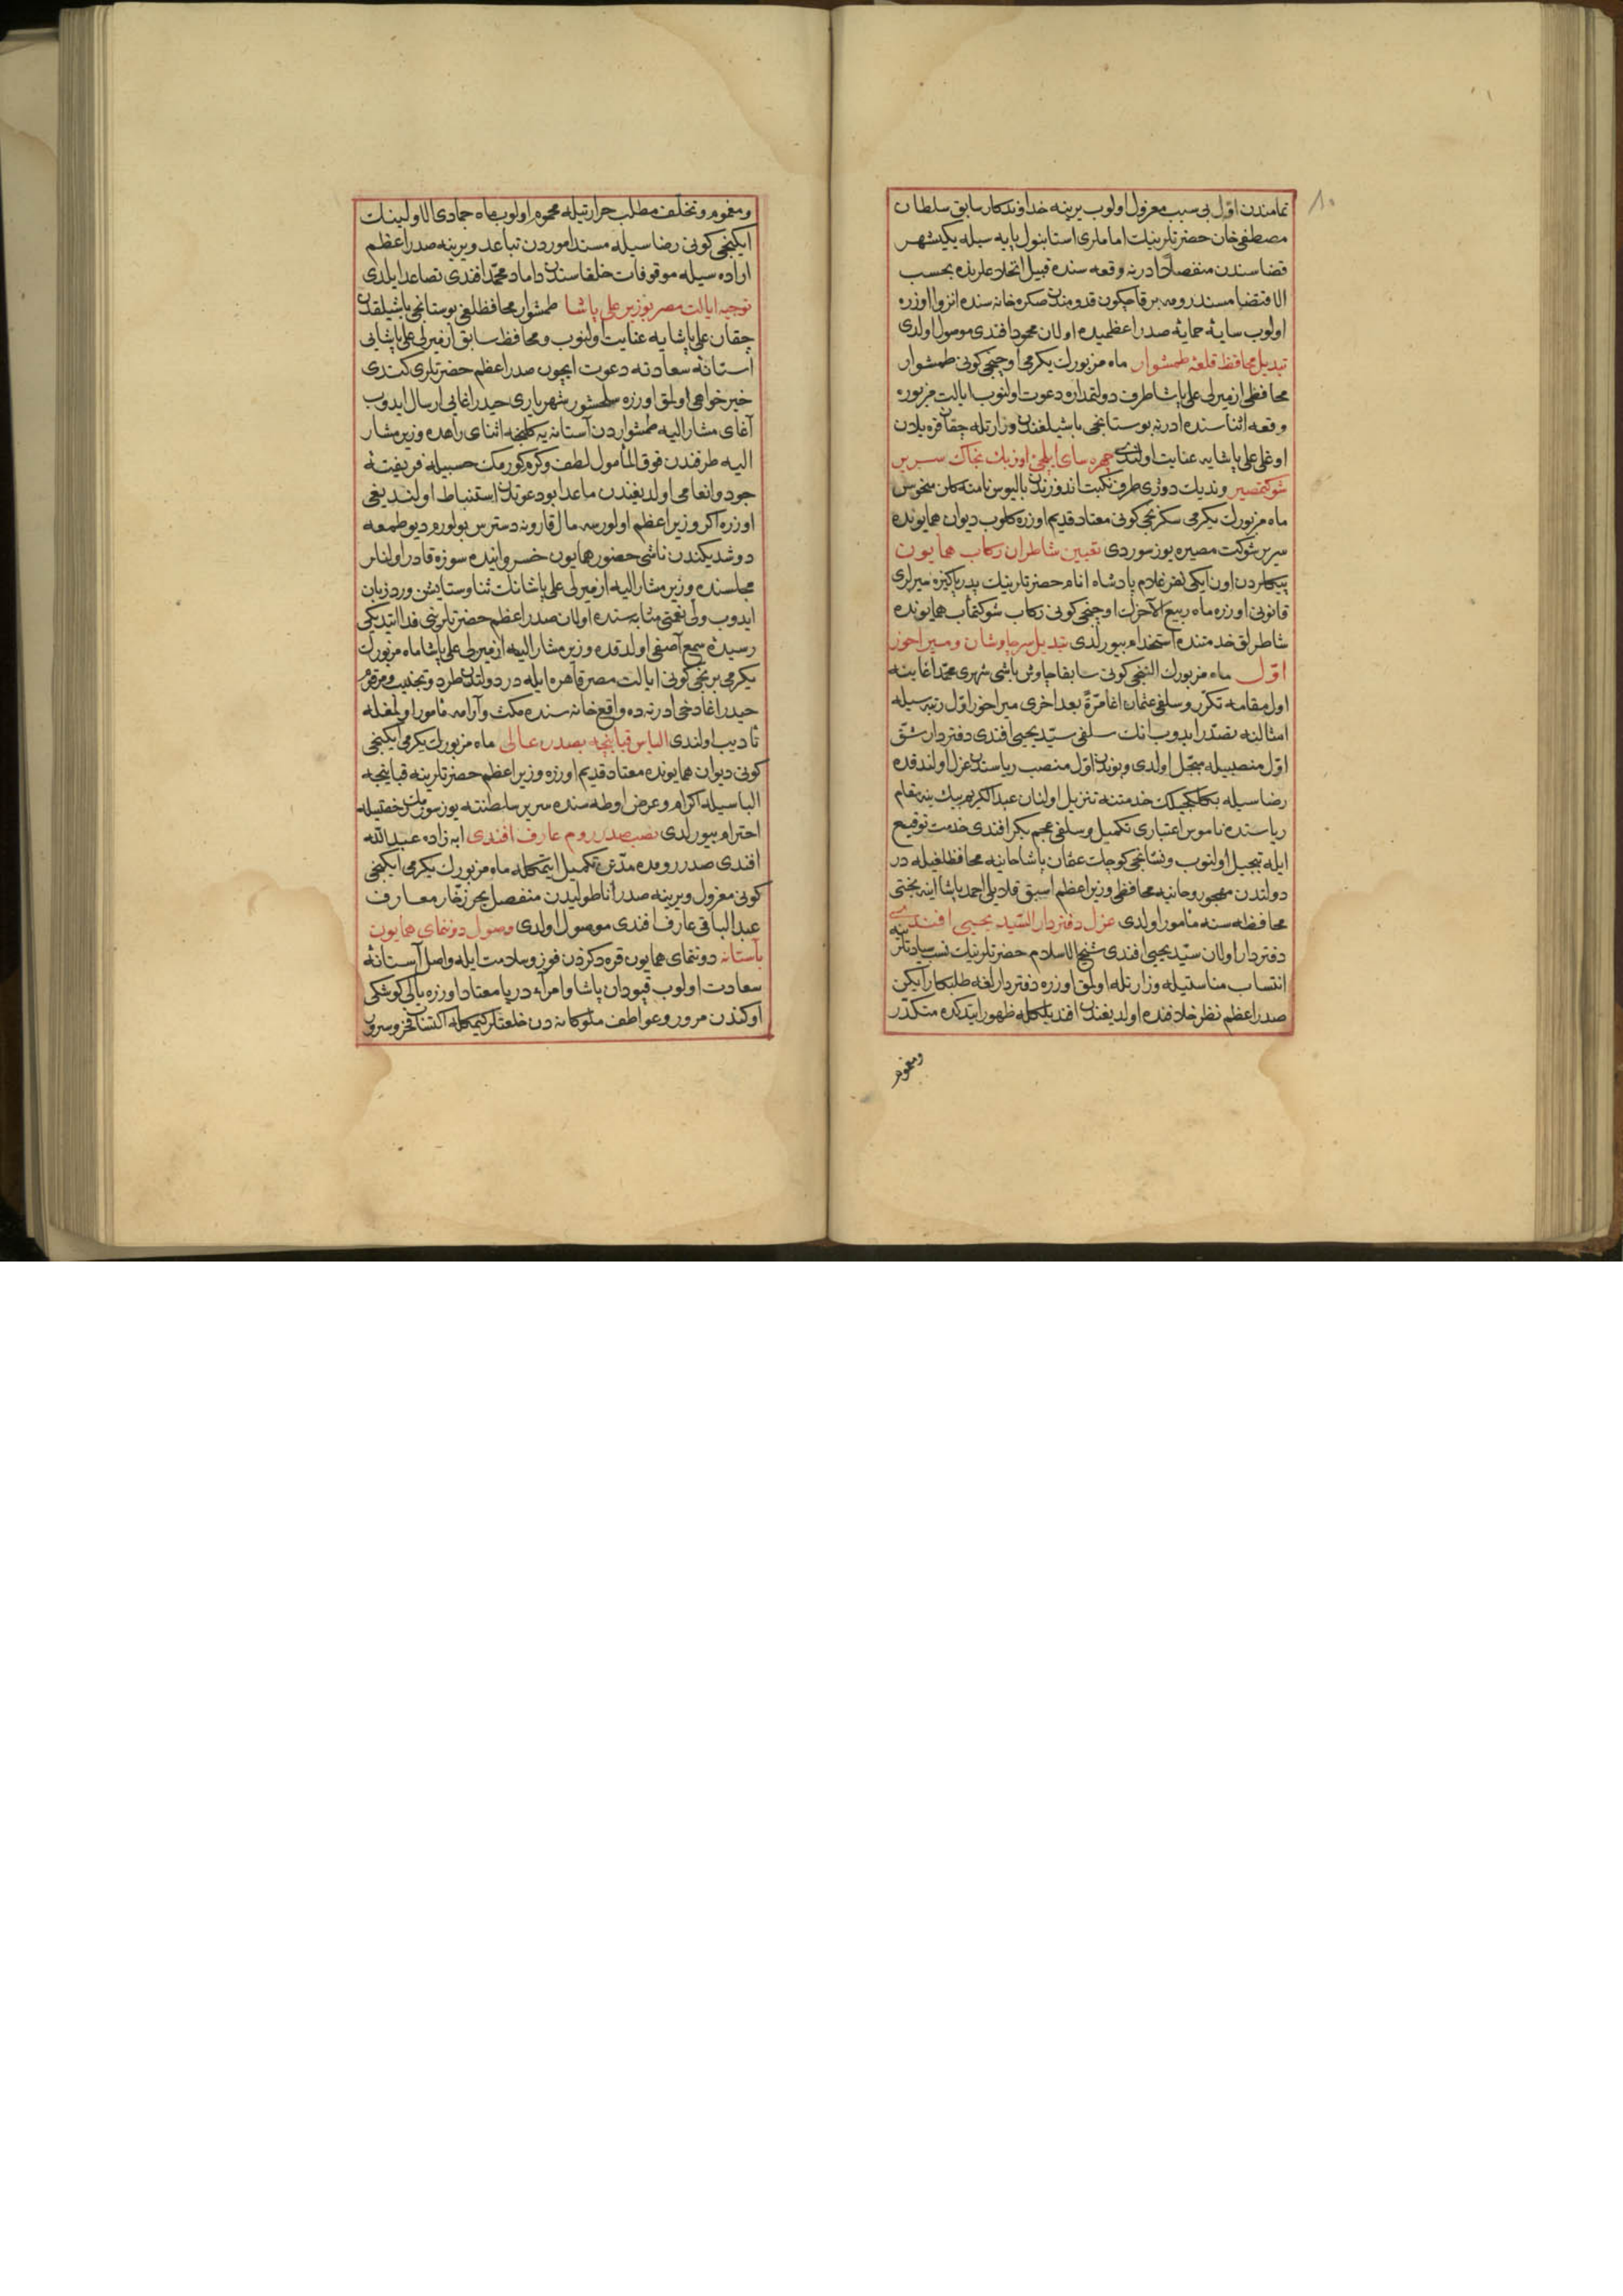 تمامندن اوّل بی سبب معزول اولوب یرینه خداوندکار سابق سلطان
مصطفی خان حضرتلرینك اماملری استانبول پایه سیله یکیشهر
قضاسندن منفصل ادرنه وقعه سنده قبیل اتحادعلرنده بحسب
الاقتضا مسند رومه بر قاچ کون قدومندن صکره خانه سنده انزوا اوزره
اولوب سایهٔ حمایهٔ صدر اعظمیده اولان محمود افندی موصول اولدی
تبدیل محافظ قلعهٔ طمشوار ماه مزبورك یکرمی اوچنجی کونی طمشوار
محافظی ازمیرلی علی پاشا طرف دولتمداره دعوت اولنوب ایالت مزبوره
وقعه اثناسنده ادرنه بوستانجی باشیلغندن وزارتله چقان قره بیلدن
اوغلی علی پاشایه عنایت اولندی چهره سای ایلچئ اوزبك بخاك سریر
شوکتمصیر وندیك دوژی طرف نکبت اندوزندن بالیوس نامنه کلن منحوس
ماه مزبورك یکرمی سکزنجی کونی معتاد قدیم اوزره کلوب دیوان همایونده
سریر شوکت مصیره یوز سوردی تعیین شاطران رکاب همایون
پیکلردن اون ایکی نفر غلام پادشاه انام حضرتلرینك پدر پاکیزه سیرلری
قانونی اوزره ماه ربیع الآخرك اوچنجی کونی رکاب شوکتمآب همایونده
شاطرلق خدمتنده استخدام بیورلدی تبدیل سرچاوشان و میراخور
اوّل ماه مزبورك التنجی کونی سابقا چاوش باشی شهری محمد اغا ینه
اول مقامه تکرّر و سلفی عثمان اغا مرّةً بعد اخری میراخور اوّل رتبه سیله
امثالنه تصدّر ایدوب انك سلفی سیّد یحیی افندی دفتردار شقّ
اوّل منصبیله مبجّل اولدی و بوندن اوّل منصب ریاستدن عزل اولندقده
رضاسیله بکلکجیلك خدمتنه تنزیل اولنان عبدالکریم بك ینه مقام
ریاستده ناموس اعتباری تکمیل و سلفی عجم بکر افندی خدمت توقیع
ایله تبجیل اولنوب و نشانجی کوچك عثمان پاشا حانیه محافظلغیله در
دولتدن مهجور و حانیه محافظی وزیر اعظم اسبق قلایلی احمد پاشا اینه بختی
محافظه سنه مأمور اولدی عزل دفتردار السّید یحیی افندی
دفتردار اولان سیّد یحیی افندی شیخ الاسلام حضرتلرینك نسب سیادتلرینه
انتساب مناسبتیله وزارتله اولمق اوزره دفتردارلغه طلبکار ایکن
صدر اعظم نظر خلافنده اولدیغندن افندیلکله ظهور ایتدکده متکدّر
ومغموم
ومغموم و تخلف مطلب حرارتیله محموم اولوب ماه جمادی الاولینك
ایکنجی کونی رضاسیله مسند اموردن تباعد و یرینه صدر اعظم
اراده سیله موقوفات خلفاسندن داماد محمّد افندی تصاعد ایلدی
توجیه ایالت مصر بوزیر علی پاشا طمشوار محافظلغی بوستانجی باشیلقدن
چقان علی پاشایه عنایت اولنوب و محافظ سابق ازمیرلی علی پاشایی
آستانهٔ سعادته دعوت ایچون صدر اعظم حضرتلری کندی
خیرخواهی اولمق اوزره سلحشور شهریاری حیدر اغایی ارسال ایدوب
آغای مشارالیه طمشواردن آستانه یه کلنجه اثنای راهده وزیر مشار
الیه طرفندن فوق المأمول لطف و کرم کورمك حسبیله فریفتهٔ
جود و انعامی اولدیغندن ماعدا بو دعوتدن استنباط اولندیغی
اوزره اکر وزیر اعظم اولورسه مال قارونه دسترس بولورم دیو طمعه
دوشدیکندن ناشی حضور همایون خسروانیده سوزه قادر اولنلر
مجلسنده وزیر مشارالیه ازمیرلی علی پاشانك ثنا و ستایشن ورد زبان
ایدوب ولی نعمتی مثابه سنده اولان صدر اعظم حضرتلرینی فدا ایتدیکی
رسیدهٔ سمع آصفی اولدقده وزیر مشارالیه ازمیرلی علی پاشا ماه مزبورك
یکرمی برنجی کونی ایالت مصر قاهره ایله در دولتدن طرد و تجنیب و مرقوم
حیدر اغا دخی ادرنه ده واقع خانه سنده مکث و آرامه مأمور اولمغله
تأدیب اولندی الباس قبانیجه بصدر عالی ماه مزبورك یکرمی ایکنجی
کونی دیوان همایونده معتاد قدیم اوزره وزیر اعظم حضرتلرینه قبانیجه
الباسیله اکرام و عرض اوطه سنده سریر سلطنته یوز سورمك رخصتیله
احترام بیورلدی نصب صدر روم عارف افندی ابه زاده عبدالله
افندی صدر رومده مدّتن تکمیل ایتمکله ماه مزبورك یکرمی ایکنجی
کونی معزول و یرینه صدر اناطولیدن منفصل بحر زخّار معارف
عبدالباقی عارف افندی موصول اولدی وصول دوننمای همایون
بآستانه دوننمای همایون قره دکزدن فوز و سلامت ایله واصل آستانهٔ
سعادت اولوب قپودان پاشا و امرآء دریا معتاد اوزره یالی کوشکی
اوکندن مرور و عواطف ملوکانه دن خلعتلر کیمکله اکتساب فخر و سرور